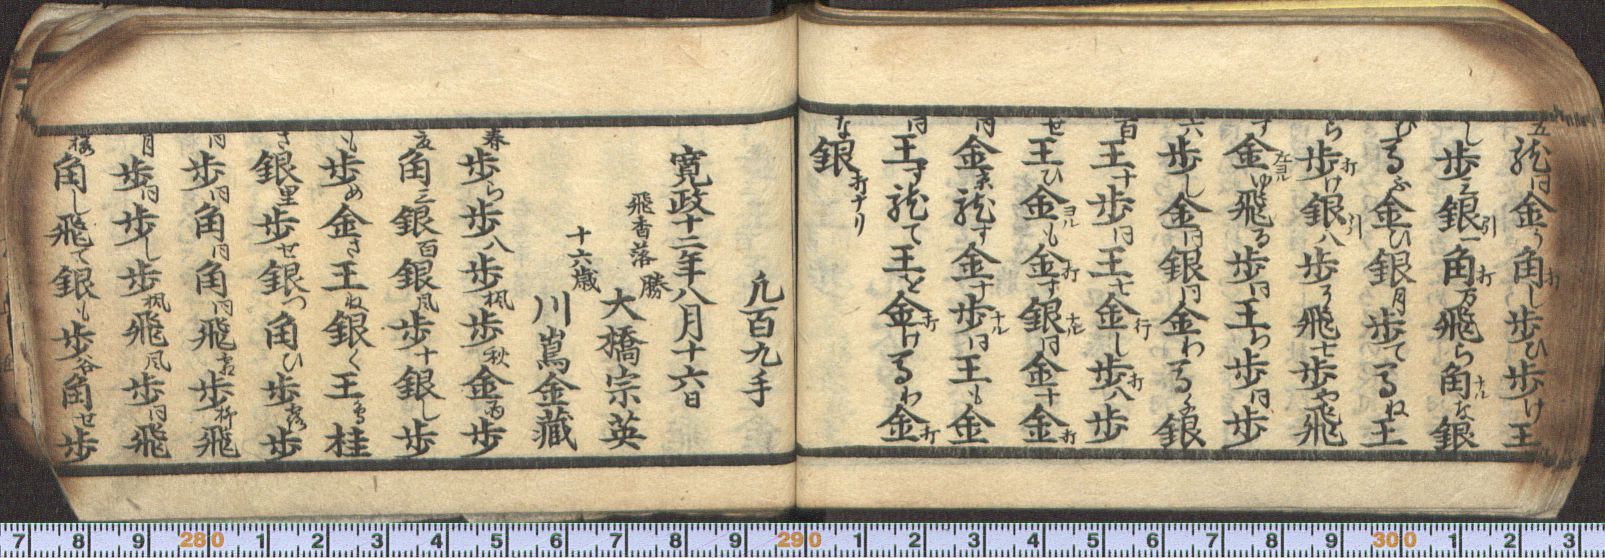 五龍同金う角打し歩ひ歩け王
し歩る銀引一角打万飛ら角ナルな銀
ひ馬ふ金ひ銀月歩て馬ね王
ら歩打け銀引八歩う飛七歩や飛と
す金左ヨルゆ飛る歩同王ち歩同歩
六歩し金同銀同金わ馬く銀
百王十歩同王七金行し歩打八歩
せ王ひ金ヨルも金打す銀左同金十金打
同金京龍す金十歩ナル同王も金
同王す龍て王と金打け馬わ金打
な銀打ナリ
凡百九手
寛政十二年八月十六日
飛香落 勝 大橋宗英
十六歳 川嶌金藏
春歩ら歩八歩楓歩秋金馬歩
夏角三銀百銀風歩十銀し歩
も歩め金さ王ね銀く王馬桂
さ銀里歩せ銀つ角ひ歩歩
同歩同角同角同飛歩柳飛
月歩同歩し歩楓飛風歩同飛
桜角し飛て銀も歩谷角せ歩
7 8 9 280 1 2 3 4 5 6 7 8 9 290 1 2 3 4 5 6 7 8 9 300 1 2 3